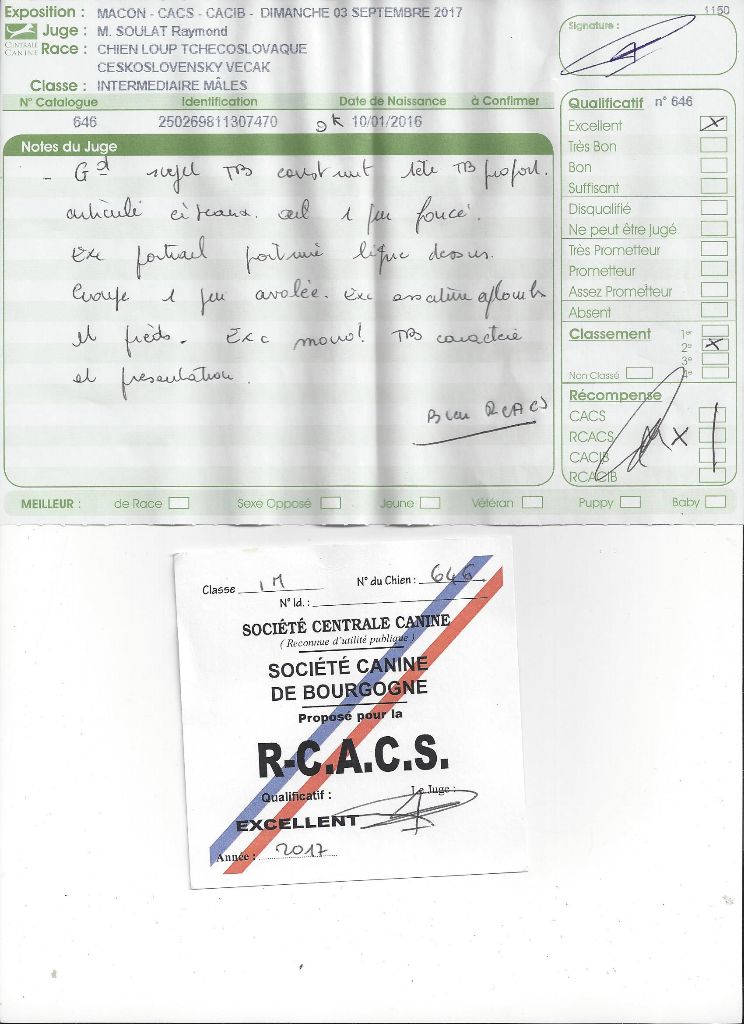 1150
Exposition : MACON - CACS - CACIB - DIMANCHE 03 SEPTEMBRE 2017
Signature :
CENTRALE CANINE
Juge : M. SOULAT Raymond
Race : CHIEN LOUP TCHECOSLOVAQUE
CESKOSLOVENSKY VECAK
Classe : INTERMEDIAIRE MÂLES
N° Catalogue Identification Date de Naissance à Confirmer
646 250269811307470 10/01/2016
Notes du Juge
- Gd sujet TB construit tête TB proport.
articulé ciseaux. œil 1 peu foncé.
Exc poitrail ligne dessus.
Croupe 1 peu avalée. Exc ossature aplombs
et pieds. Exc mouvt TB caractère
et présentation.
RCACS
Qualificatif n° 646
Excellent X
Très Bon
Bon
Suffisant
Disqualifié
Ne peut être Jugé
Très Prometteur
Prometteur
Assez Prometteur
Absent
Classement 1er
2e X
3e
Non Classé 4e
Récompense
CACS
RCACS X
CACIB
RCACIB
MEILLEUR : de Race Sexe Opposé Jeune Vétéran Puppy Baby
Classe IM N° du Chien : 646
N° Id. :
SOCIÉTÉ CENTRALE CANINE
( Reconnue d'utilité publique )
SOCIÉTÉ CANINE
DE BOURGOGNE
Proposé pour la
R-C.A.C.S.
Qualificatif : Le Juge :
EXCELLENT
Année : 2017